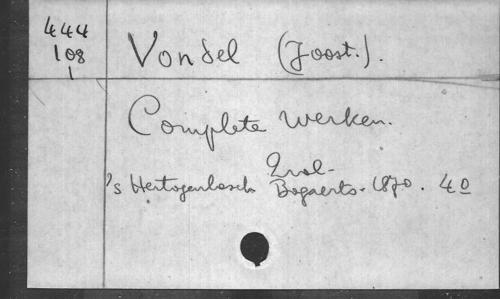 444
108
1
Vondel (Joost.).
Complete Werken.
2 vol-
's Hertogenbosch Bogaerts. 1870. 4º